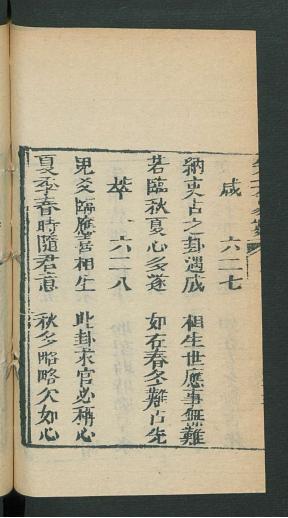 咸 六二七
納吏占之卦遇咸 相生世應事無難
若臨秋夏心多遂 如在春冬難占先
萃 六二八
兄爻臨應喜相生 此卦求官必稱心
夏季春時隨君意 秋多略略欠如心